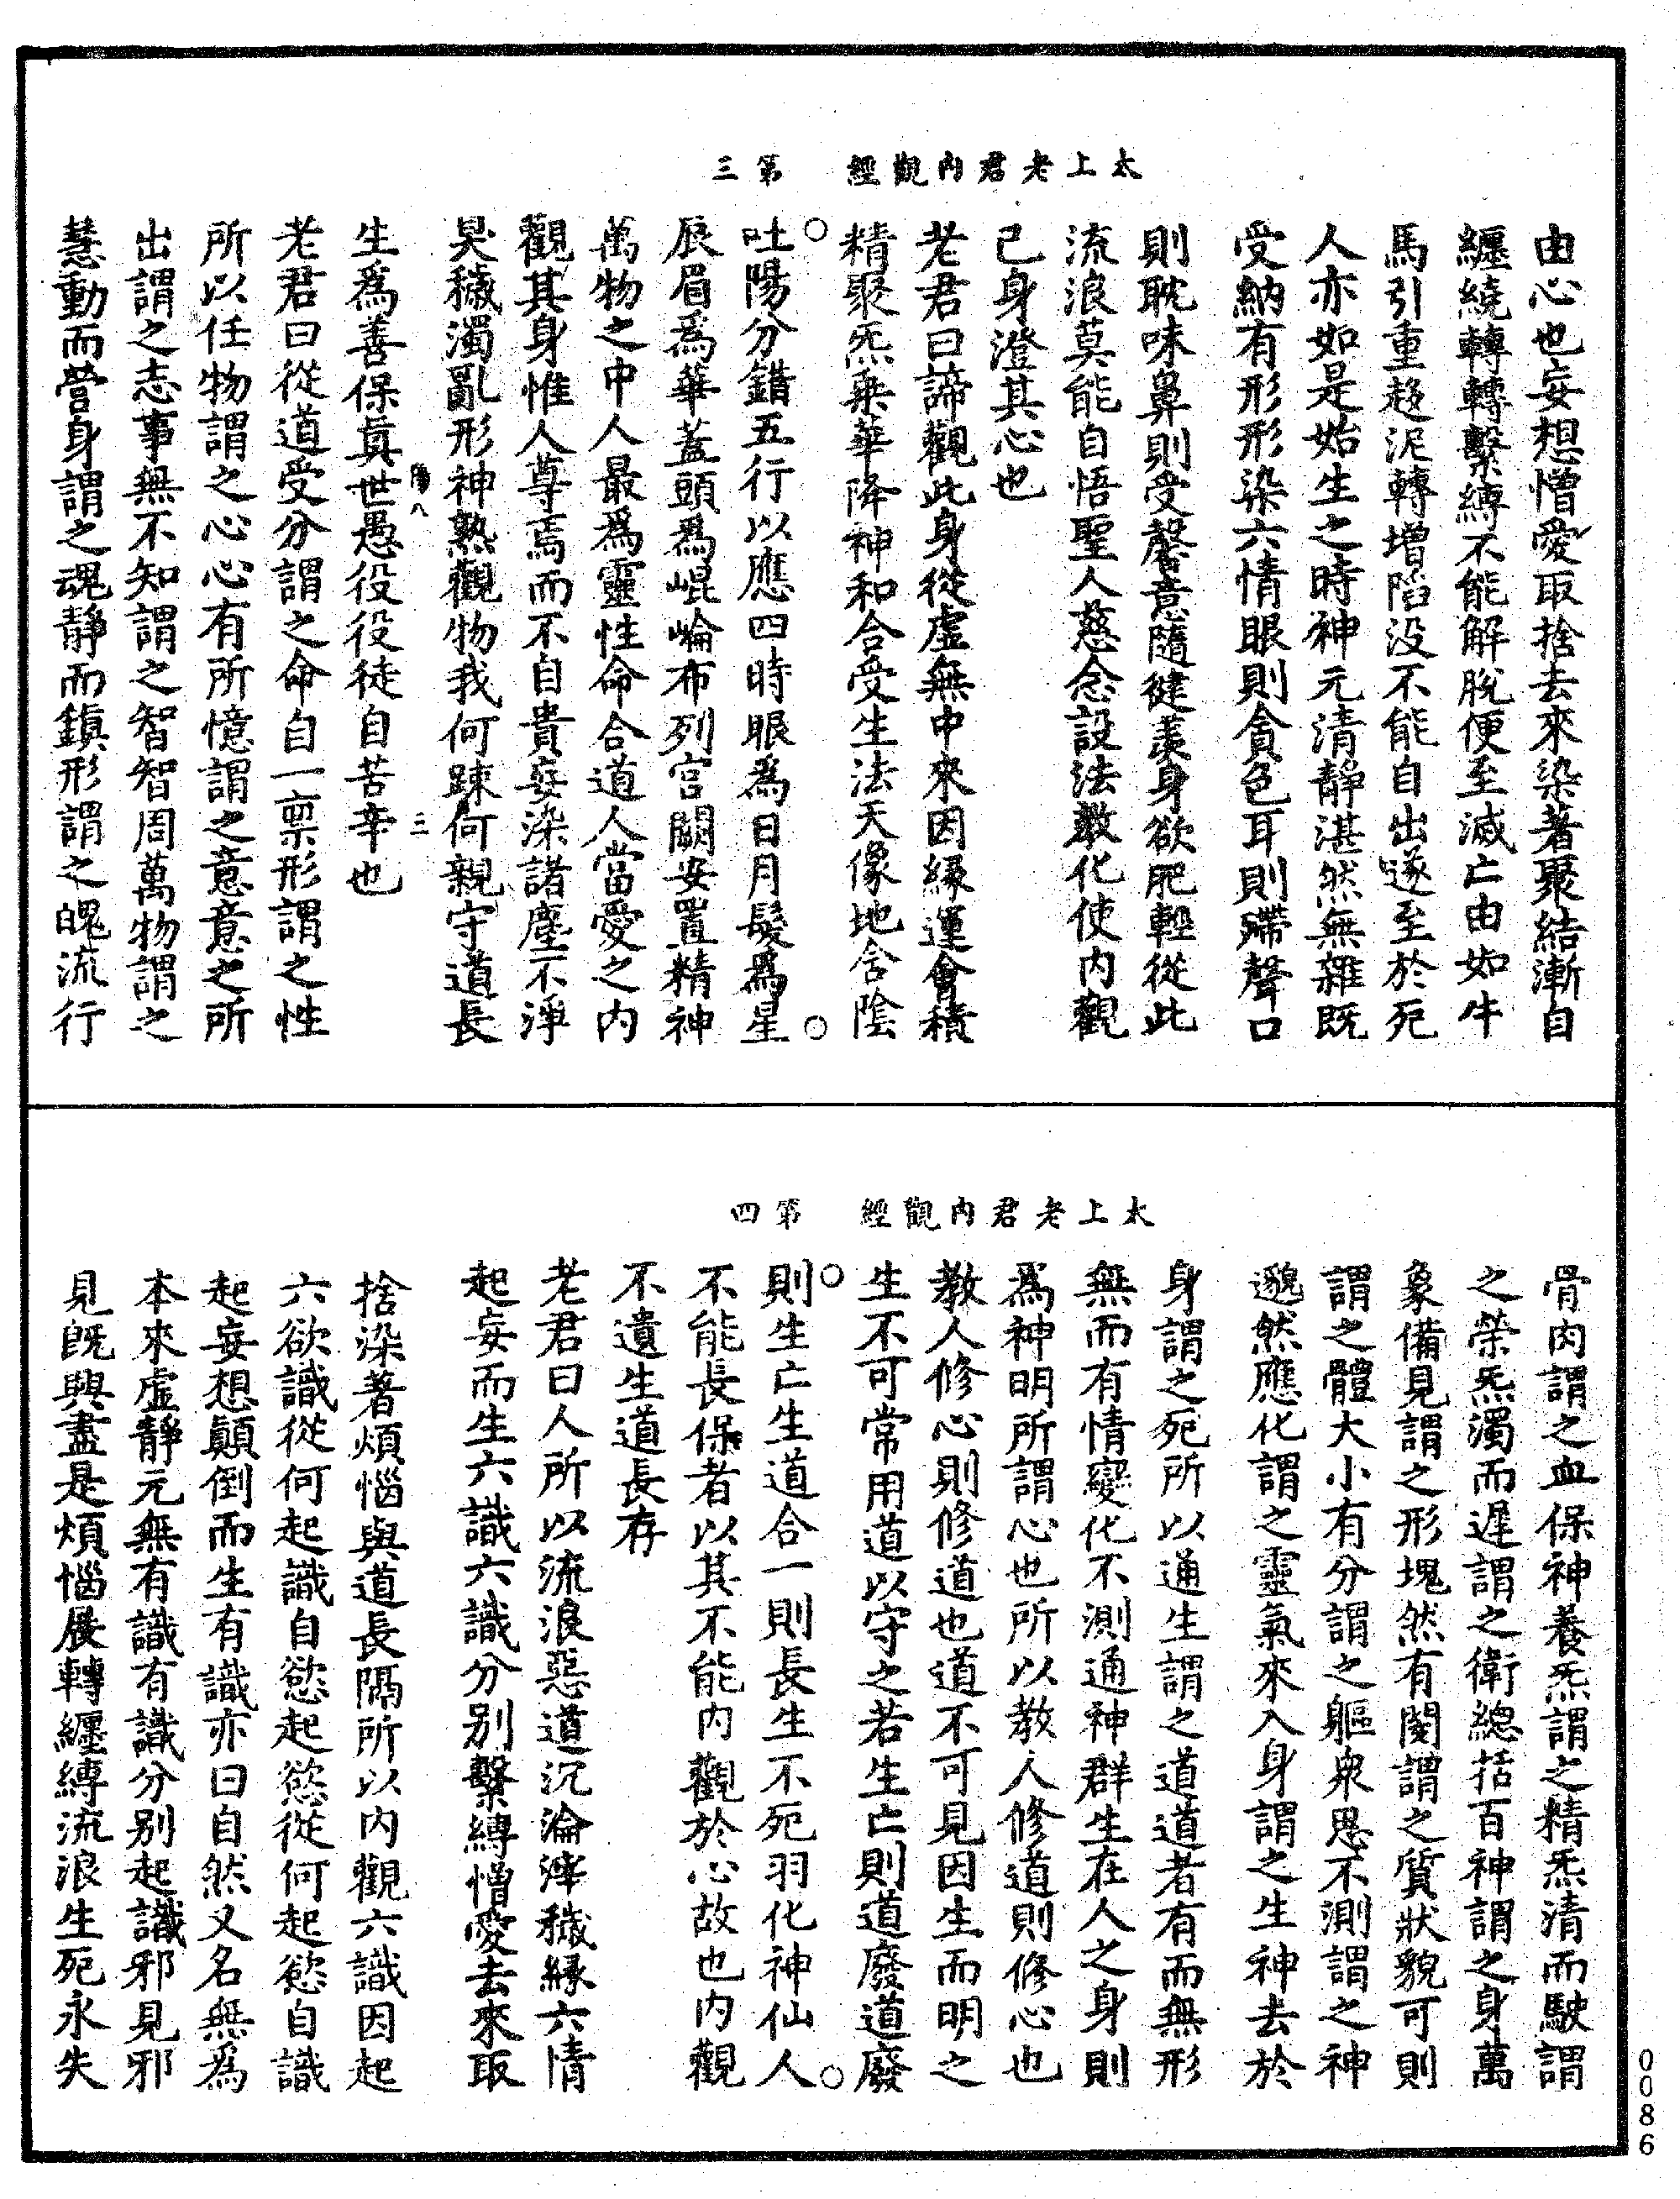 太上老君內觀經　第三
由心也妄想憎愛取捨去來染著聚結漸自
纏繞轉轉繫縛不能解脫便至滅亡由如牛
馬引重趍泥轉增陷没不能自出遂至於死
人亦如是始生之時神元清静湛然無雜既
受納有形形染六情眼則貪色耳則滯聲口
則耽味鼻則受馨意隨健羨身欲肥輕從此
流浪莫能自悟聖人慈念設法教化使內觀
己身澄其心也
老君曰諦觀此身從虚無中來因緣運會積
精聚炁乘華降神和合受生法天像地含陰
吐陽分錯五行以應四時眼為日月髮為星
辰眉為華蓋頭為崐崘布列宮闕安置精神
萬物之中人最為靈性命合道人當愛之內
觀其身惟人尊焉而不自貴妄染諸塵不淨
臭穢濁亂形神熟觀物我何踈何親守道長
生為善保真世愚役役徒自苦辛也
傷八　三
老君曰從道受分謂之命自一稟形謂之性
所以任物謂之心心有所憶謂之意意之所
出謂之志事無不知謂之智智周萬物謂之
慧動而營身謂之魂静而鎮形謂之魄流行
太上老君內觀經　第四
骨肉謂之血保神養炁謂之精炁清而駛謂
之榮炁濁而遲謂之衛緫括百神謂之身萬
象備見謂之形塊然有閡謂之質狀貌可則
謂之體大小有分謂之軀衆思不測謂之神
邈然應化謂之靈氣來入身謂之生神去於
身謂之死所以通生謂之道道者有而無形
無而有情變化不測通神群生在人之身則
為神明所謂心也所以教人修道則修心也
教人修心則修道也道不可見因生而明之
生不可常用道以守之若生亡則道廢道廢
則生亡生道合一則長生不死羽化神仙人
不能長保者以其不能內觀於心故也內觀
不遺生道長存
老君曰人所以流浪惡道沉淪滓穢緣六情
起妄而生六識六識分别繫縛憎愛去來取
捨染著煩惱與道長隔所以内觀六識因起
六欲識從何起識自慾起慾從何起慾自識
起妄想顛倒而生有識亦曰自然又名無為
本來虚静元無有識有識分别起識邪見邪
見旣興盡是煩惱展轉纏縛流浪生死永失
0086